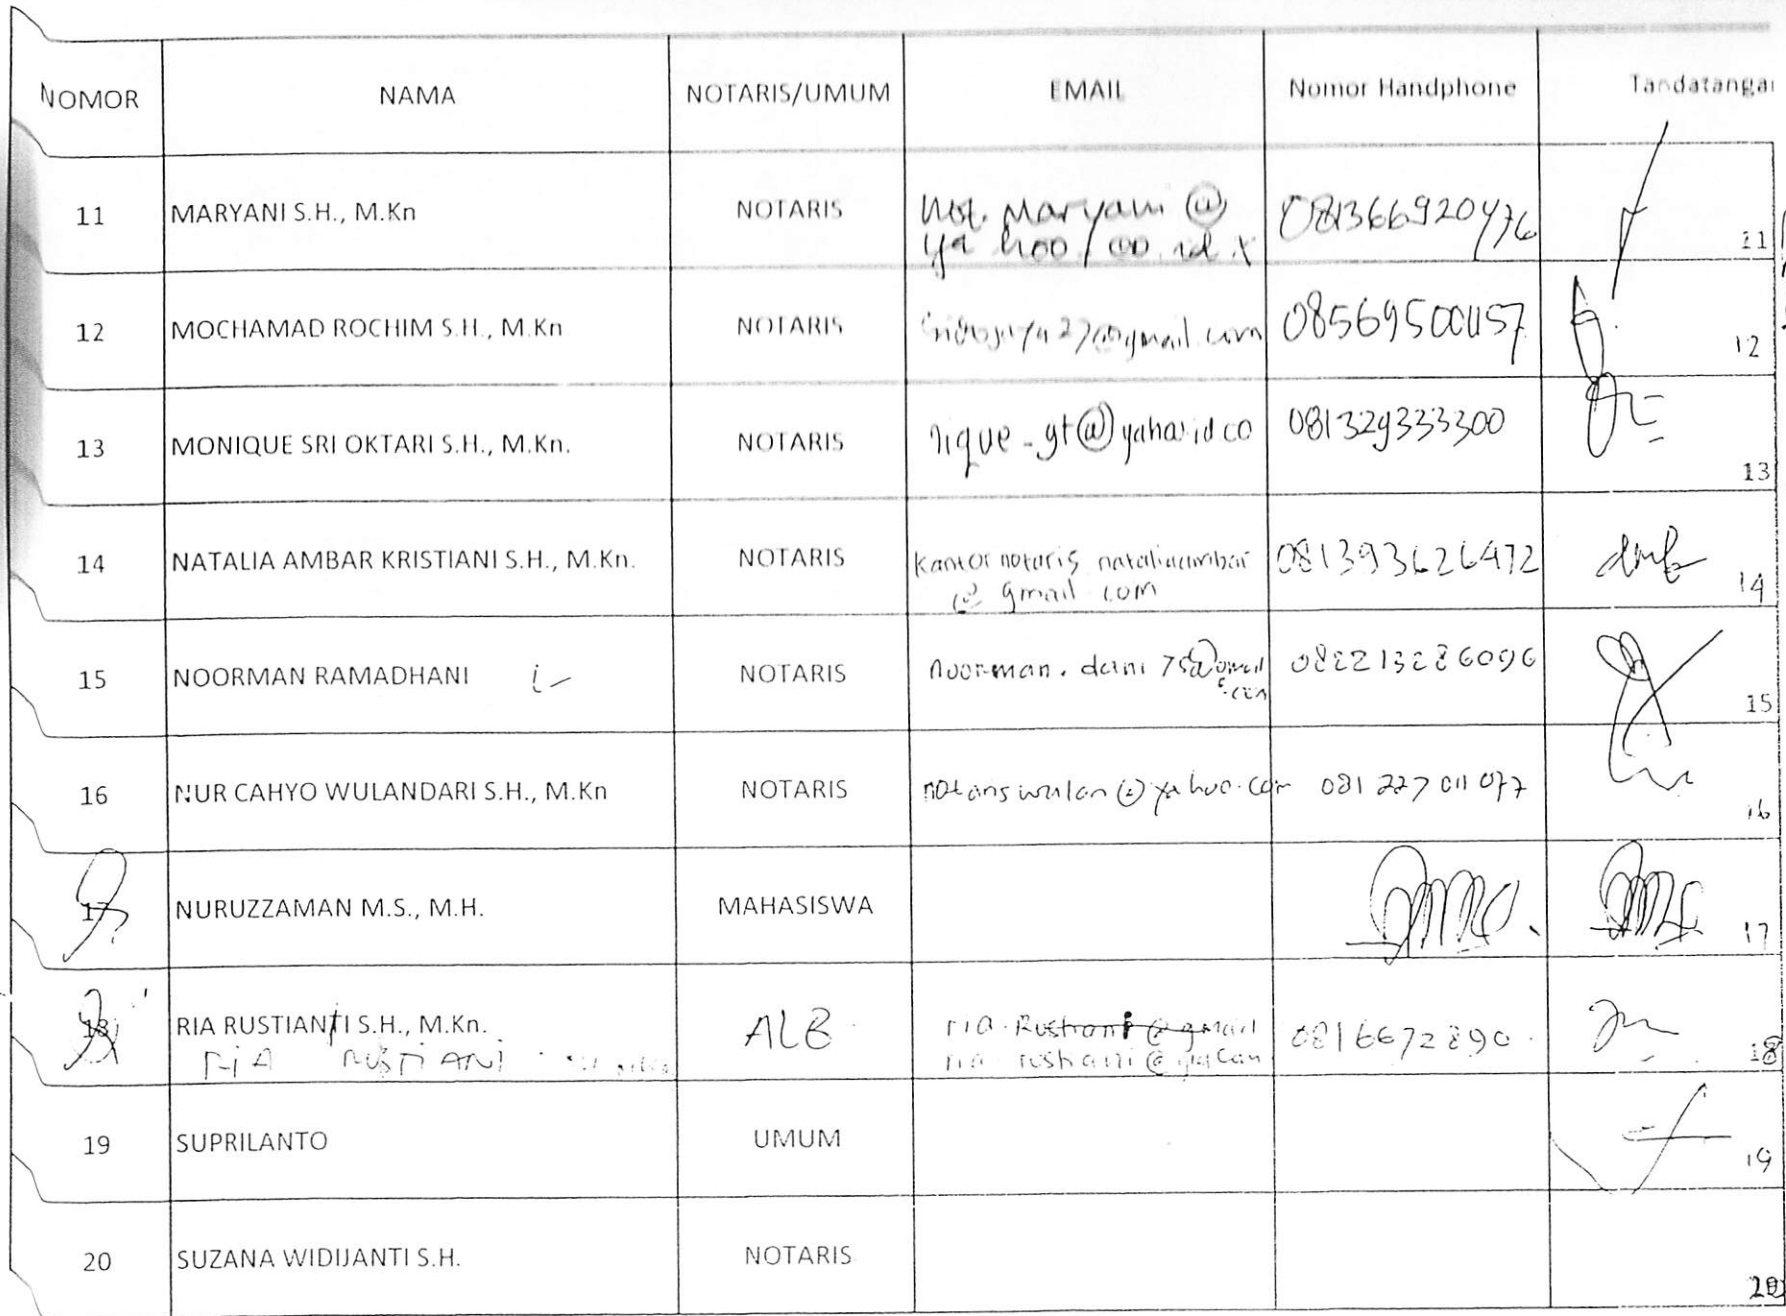 NOMOR NAMA NOTARIS/UMUM EMAIL Nomor Handphone Tandatangan
11 MARYANI S.H., M.Kn NOTARIS not. Maryani @ 081366920476
yahoo / co. id 11
12 MOCHAMAD ROCHIM S.H., M.Kn NOTARIS @gmail.com 12
13 MONIQUE SRI OKTARI S.H., M.Kn. NOTARIS nique_gt@ 081329333300 13
14 NATALIA AMBAR KRISTIANI S.H., M.Kn. NOTARIS kantor notaris nataliaambar 081393626472
@ gmail com 14
15 NOORMAN RAMADHANI NOTARIS noorman. dani 75@gmail 082213286096
.com 15
16 NUR CAHYO WULANDARI S.H., M.Kn NOTARIS notariswulan@yahoo.com 081 227 011 077 16
17 NURUZZAMAN M.S., M.H. MAHASISWA 17
18 RIA RUSTIANTI S.H., M.Kn. ALB ria.Rustiani@gmail 0816672890. 18
RIA RUSTIANI ria rustiani@
19 SUPRILANTO UMUM 19
20 SUZANA WIDIJANTI S.H. NOTARIS 20